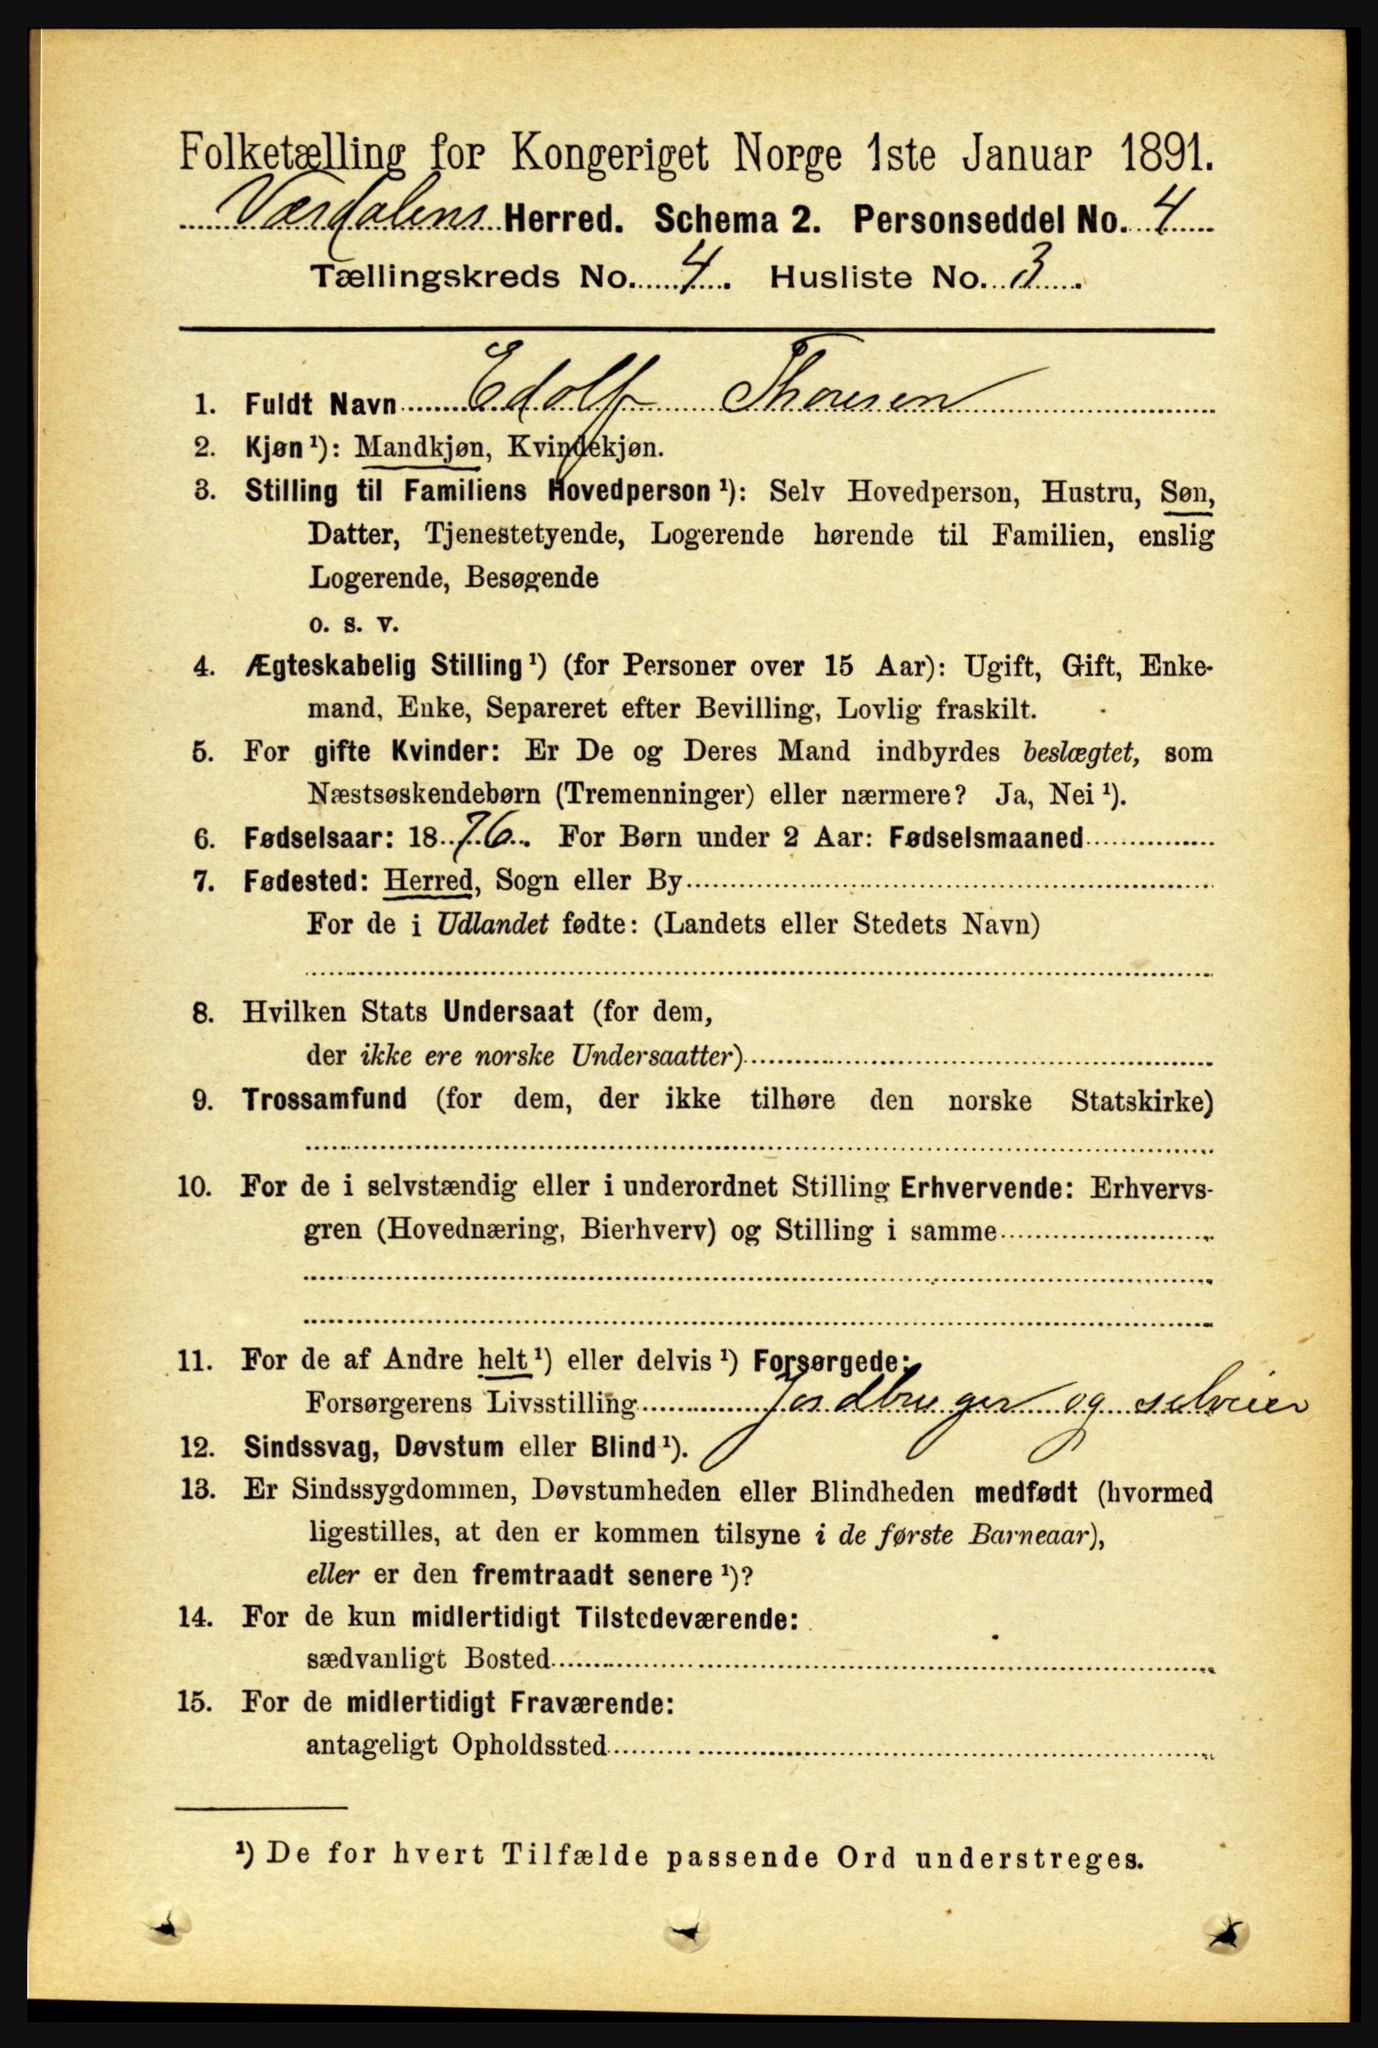 Folketælling for Kongeriget Norge 1ste Januar 1891.
Værdalens Herred. Schema 2. Personseddel No. 4
Tællingskreds No. 4. Husliste No. 3.
1. Fuldt Navn Edolf Thoresen
2. Kjøn ¹): Mandkjøn, Kvindekjøn.
3. Stilling til Familiens Hovedperson ¹): Selv Hovedperson, Hustru, Søn,
Datter, Tjenestetyende, Logerende hørende til Familien, enslig
Logerende, Besøgende
o. s. v.
4. Ægteskabelig Stilling ¹) (for Personer over 15 Aar): Ugift, Gift, Enke-
mand, Enke, Separeret efter Bevilling, Lovlig fraskilt.
5. For gifte Kvinder: Er De og Deres Mand indbyrdes beslægtet, som
Næstsøskendebørn (Tremenninger) eller nærmere? Ja, Nei ¹).
6. Fødselsaar: 1876. For Børn under 2 Aar: Fødselsmaaned
7. Fødested: Herred, Sogn eller By
For de i Udlandet fødte: (Landets eller Stedets Navn)
8. Hvilken Stats Undersaat (for dem,
der ikke ere norske Undersaatter)
9. Trossamfund (for dem, der ikke tilhøre den norske Statskirke)
10. For de i selvstændig eller i underordnet Stilling Erhvervende: Erhvervs-
gren (Hovednæring, Bierhverv) og Stilling i samme
11. For de af Andre helt ¹) eller delvis ¹) Forsørgede:
Forsørgerens Livsstilling Jordbruger og selveier
12. Sindssvag, Døvstum eller Blind ¹).
13. Er Sindssygdommen, Døvstumheden eller Blindheden medfødt (hvormed
ligestilles, at den er kommen tilsyne i de første Barneaar),
eller er den fremtraadt senere ¹)?
14. For de kun midlertidigt Tilstedeværende:
sædvanligt Bosted
15. For de midlertidigt Fraværende:
antageligt Opholdssted
¹) De for hvert Tilfælde passende Ord understreges.